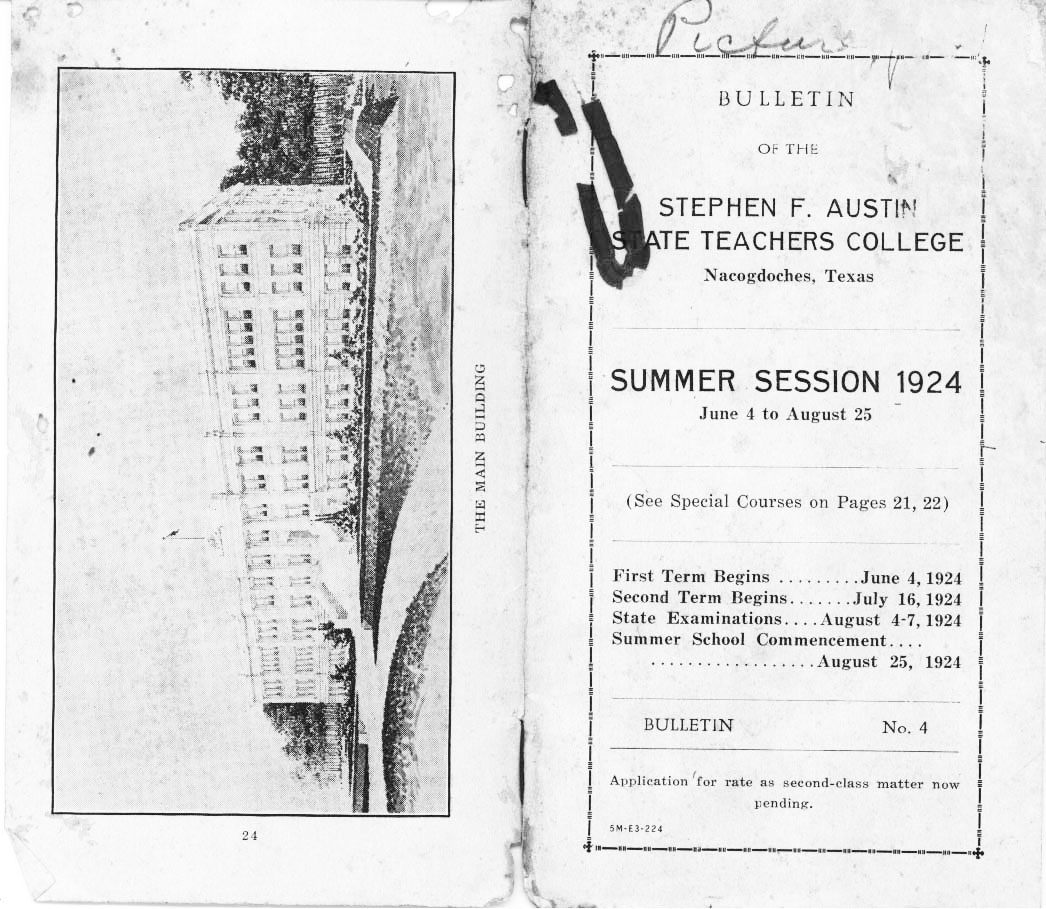 THE MAIN BUILDING
24
Picture
BULLETIN
OF THE
STEPHEN F. AUSTIN
STATE TEACHERS COLLEGE
Nacogdoches, Texas
SUMMER SESSION 1924
June 4 to August 25
(See Special Courses on Pages 21, 22)
First Term Begins .........June 4, 1924
Second Term Begins.......July 16, 1924
State Examinations....August 4-7, 1924
Summer School Commencement....
..................August 25, 1924
BULLETIN No. 4
Application for rate as second-class matter now
pending.
5M-E3-224